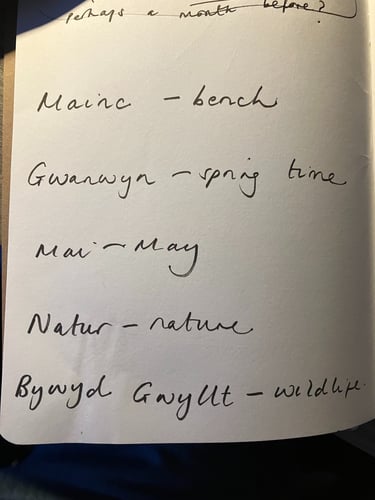 perhaps a month before?
Mainc - bench
Gwanwyn - spring time
Mai - May
Natur - nature
Bywyd Gwyllt - wildlife.